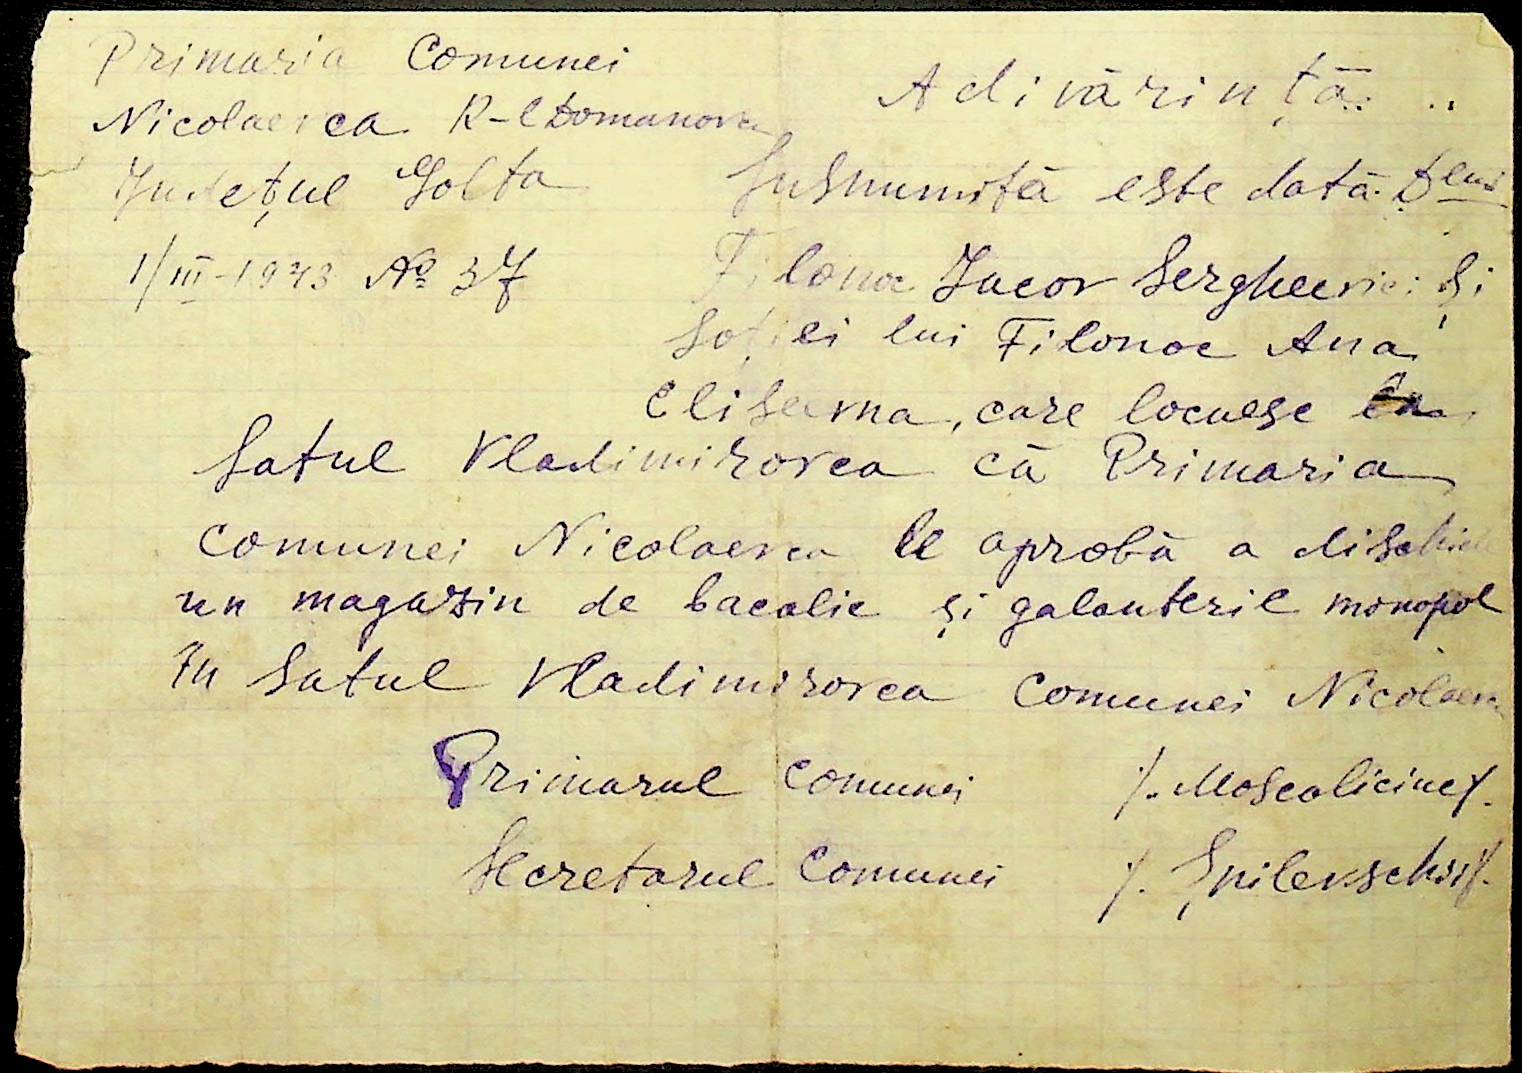 Primaria Comunei
Nicolaevca R-l Domanovca
Județul Golta
1/III-1943 № 37
Adivărință
Susnumită este dată Dlui
Filonoc Iacov Sergheevici și
soției lui Filonoc Ana
Eliseevna, care locuesc în
satul Vladimirovca că Primaria
comunei Nicolaevca le aprobă a dischide
un magazin de bacalie și galanterie monopol
în satul Vladimirovca comunei Nicolaevca
Primarul comunei /. Moscalicine /.
Secretarul comunei /.